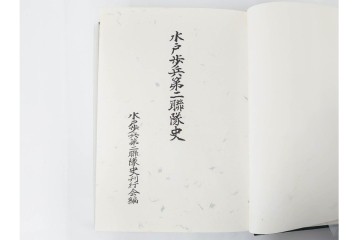 水戸歩兵第二聯隊史
水戸歩兵第二聯隊史刊行会編